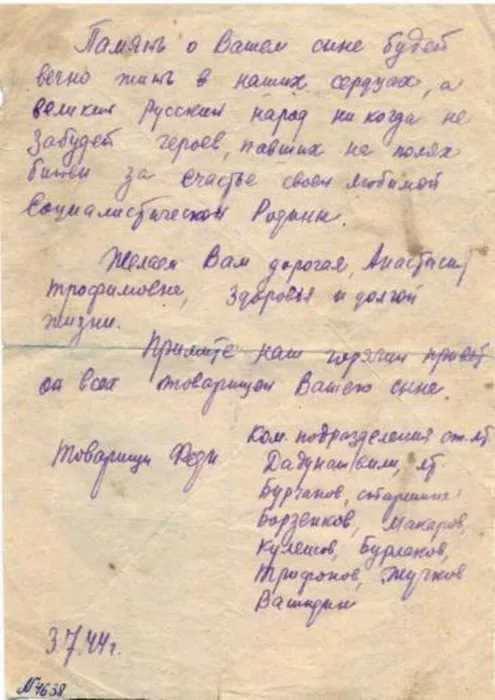 Память о Вашем сыне будет
вечно жить в наших сердцах, а
великий Русский народ никогда не
забудет героев, павших на полях
битви за счастье своей любимой
Социалистической Родины.
Желаем Вам дорогая, Анастасия
Трофимовна, здоровья и долгой
жизни.
Примите наш горячий привет
от всех товарищей Вашего сына.
Товарищи Феди
Ком. подразделения ст. лт.
Дадунашвили, лт.
Бурганов, старшина
Борзенков, Макаров,
Кулешов, Бурлаков,
Трифонов, Жучков
3.7.44г.
№4638